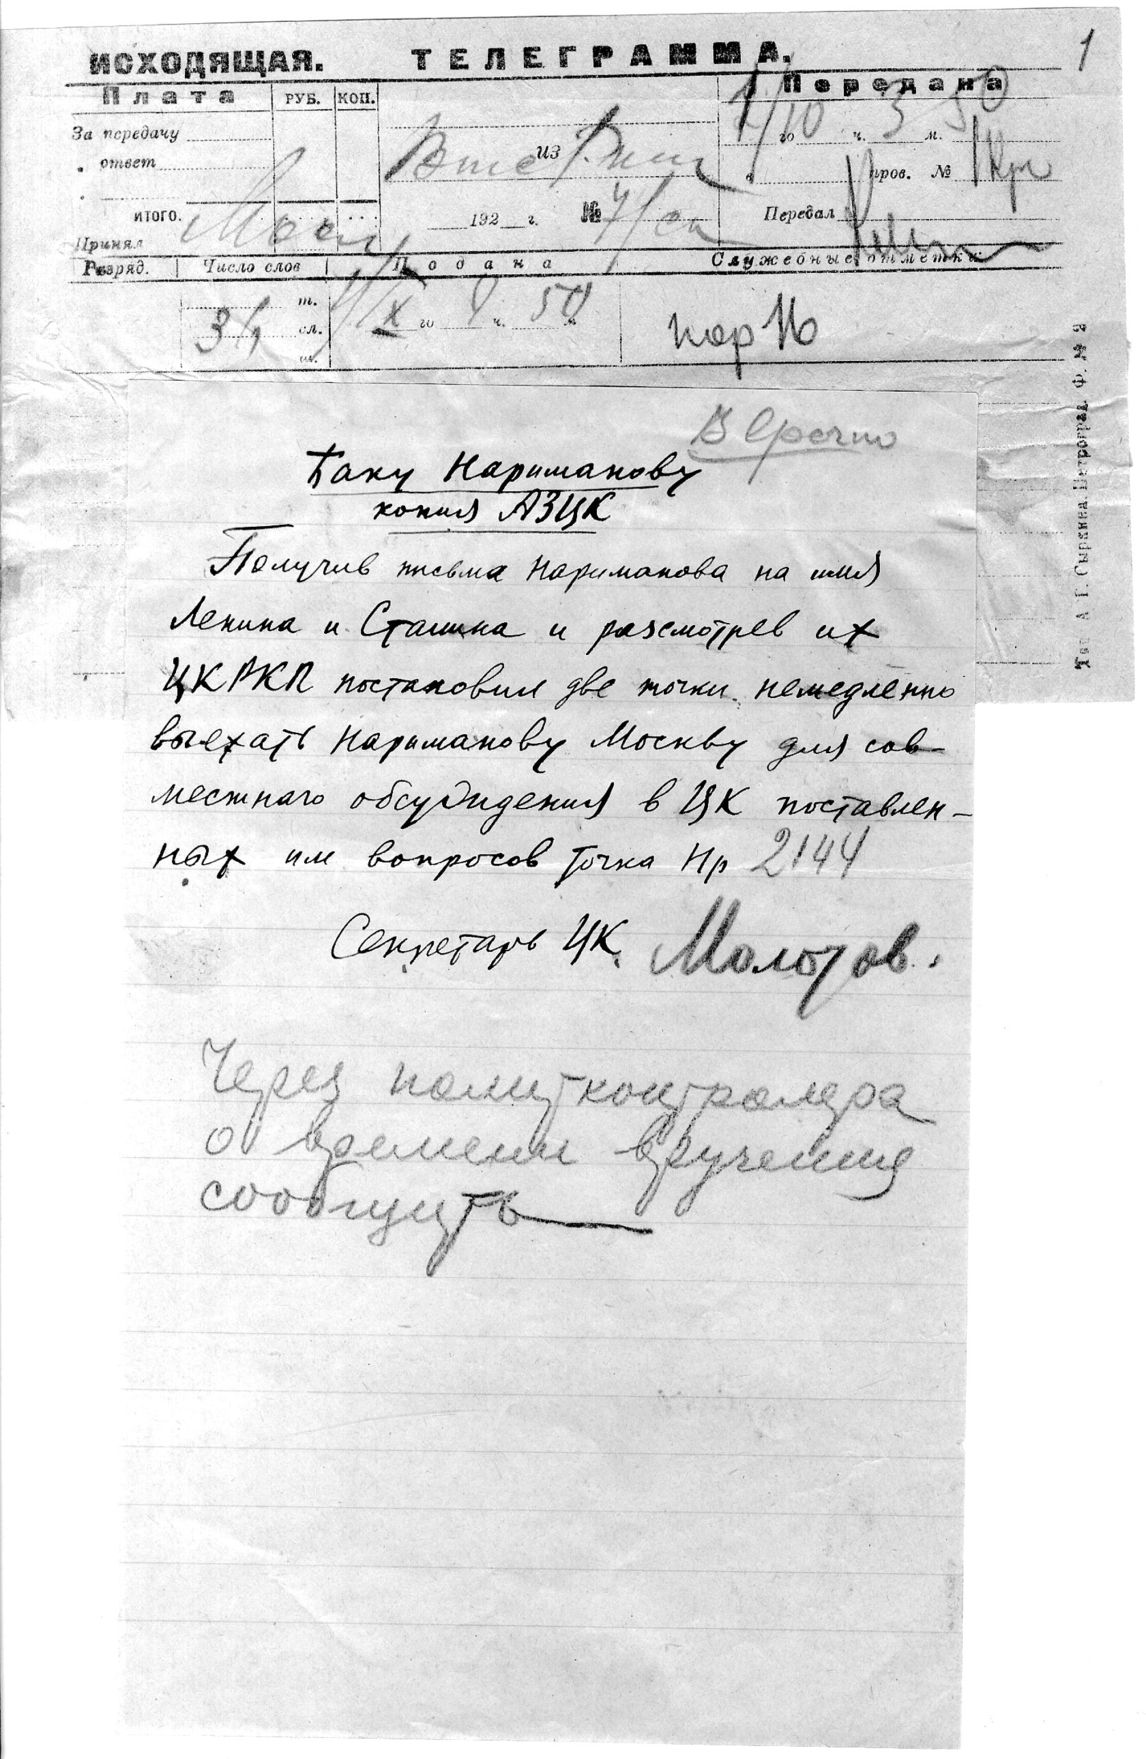 1
ИСХОДЯЩАЯ. ТЕЛЕГРАММА.
Плата РУБ. КОП. Передана
За передачу
1/10 го ч. 3 м. 50
" ответ
из
пров. №
ИТОГО.
192 г. №
Передал
Принял
Разряд. Число слов Подана Служебные отметки:
т.
сл. X го ч. 50 м
ш.
Тип. А. Г. Сыркина, Петроград. Ф. № 2
В Срочно
Баку Нариманову
копия АЗЦК
Получив письма Нариманова на имя
Ленина и Сталина и разсмотрев их
ЦК РКП постановил две точки немедленно
выехать Нариманову Москву для сов-
местнаго обсуждения в ЦК поставлен-
ных им вопросов точка Нр 2144
Секретарь ЦК. Молотов.
Через политконтролера
о времени вручения
сообщить